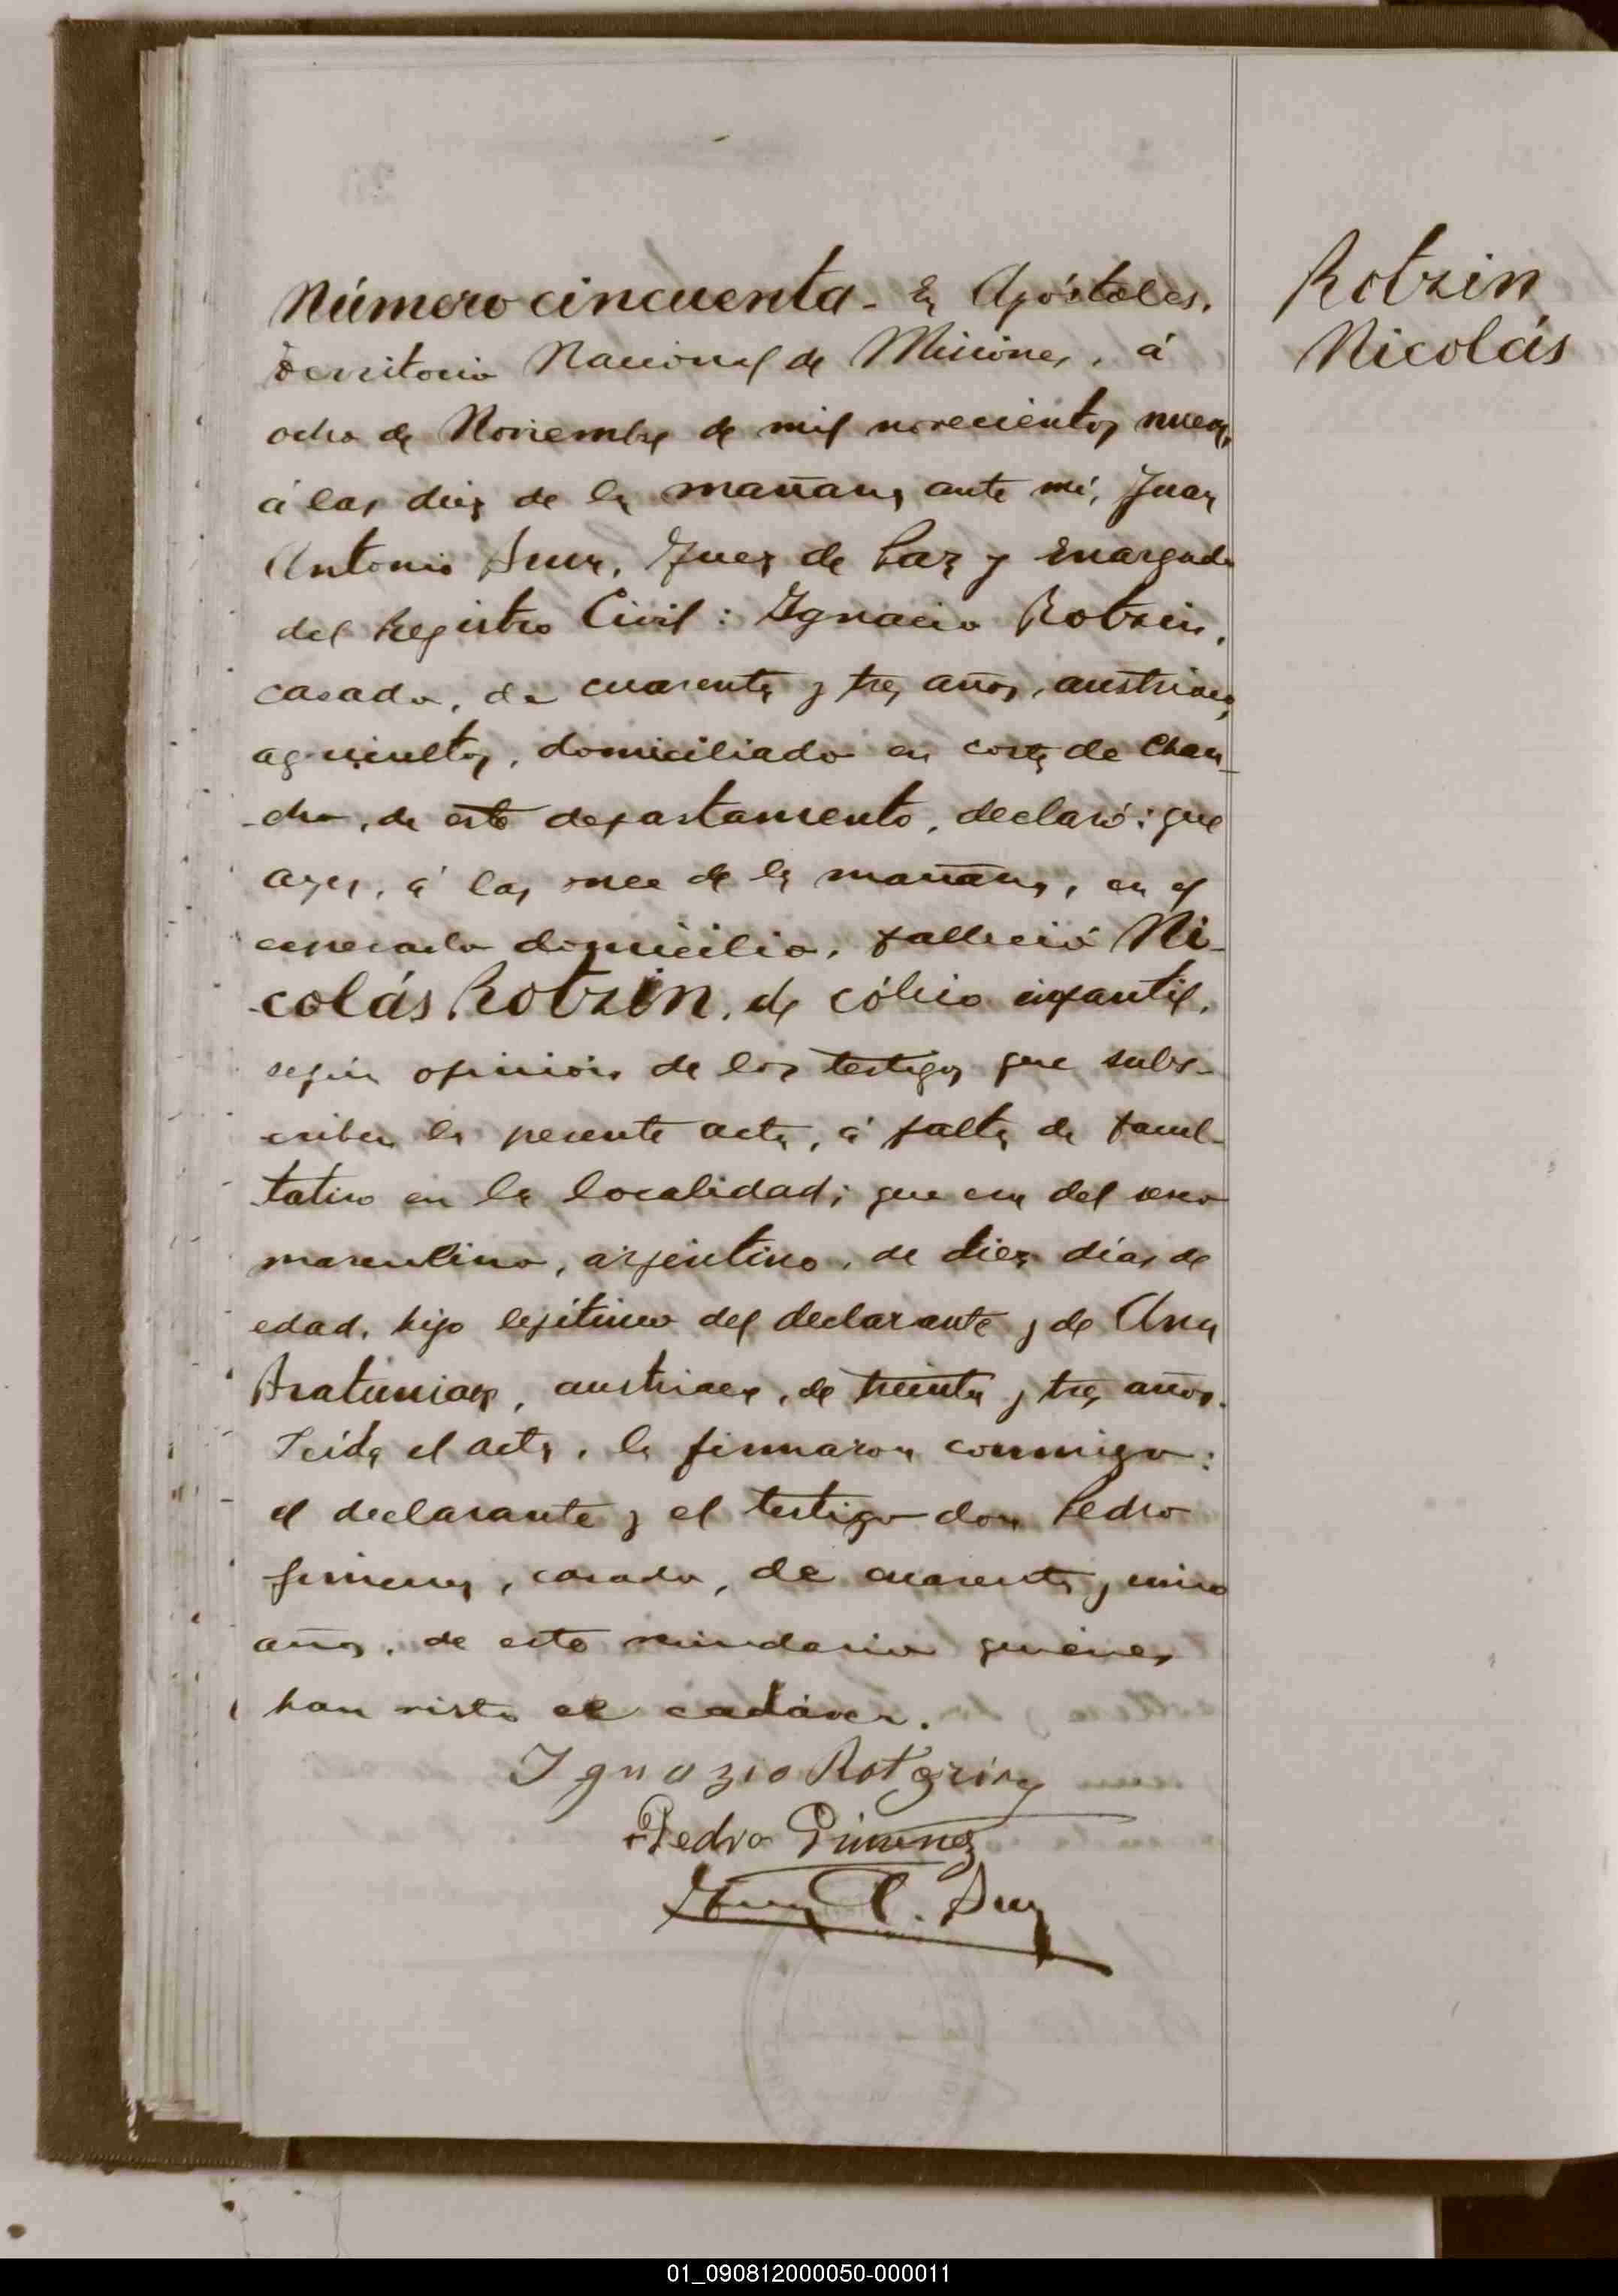 Rotzin
Nicolás
Número cincuenta - En Apóstoles,
Territorio Nacional de Misiones, á
ocho de Noviembre de mil novecientos nueve,
á las diez de la mañana, ante mí, Juan
Antonio Juez de Paz y Encargado
del Registro Civil: Ygnacio Rotzin,
casado, de cuarenta y tres años, austriaco,
agricultor, domiciliado en costa de Chan-
cho, de este departamento, declaró: que
ayer, á las once de la mañana, en el
expresado domicilio, falleció Ni-
colás Rotzin, de cólico infantil,
según opinión de los testigos que subs-
criben la presente acta, á falta de facul-
tativo en la localidad; que era del sexo
masculino, argentino, de diez días de
edad, hijo legítimo del declarante y de Ana
austriaca, de treinta y tres años.
Leída el acta, la firmaron conmigo:
el declarante y el testigo don Pedro
Jimenez, casado, de cuarenta y cinco
años, de este vecindario quienes
han visto el cadáver.
Ignazio
Pedro Gimenez
Juan A.
01_090812000050-000011